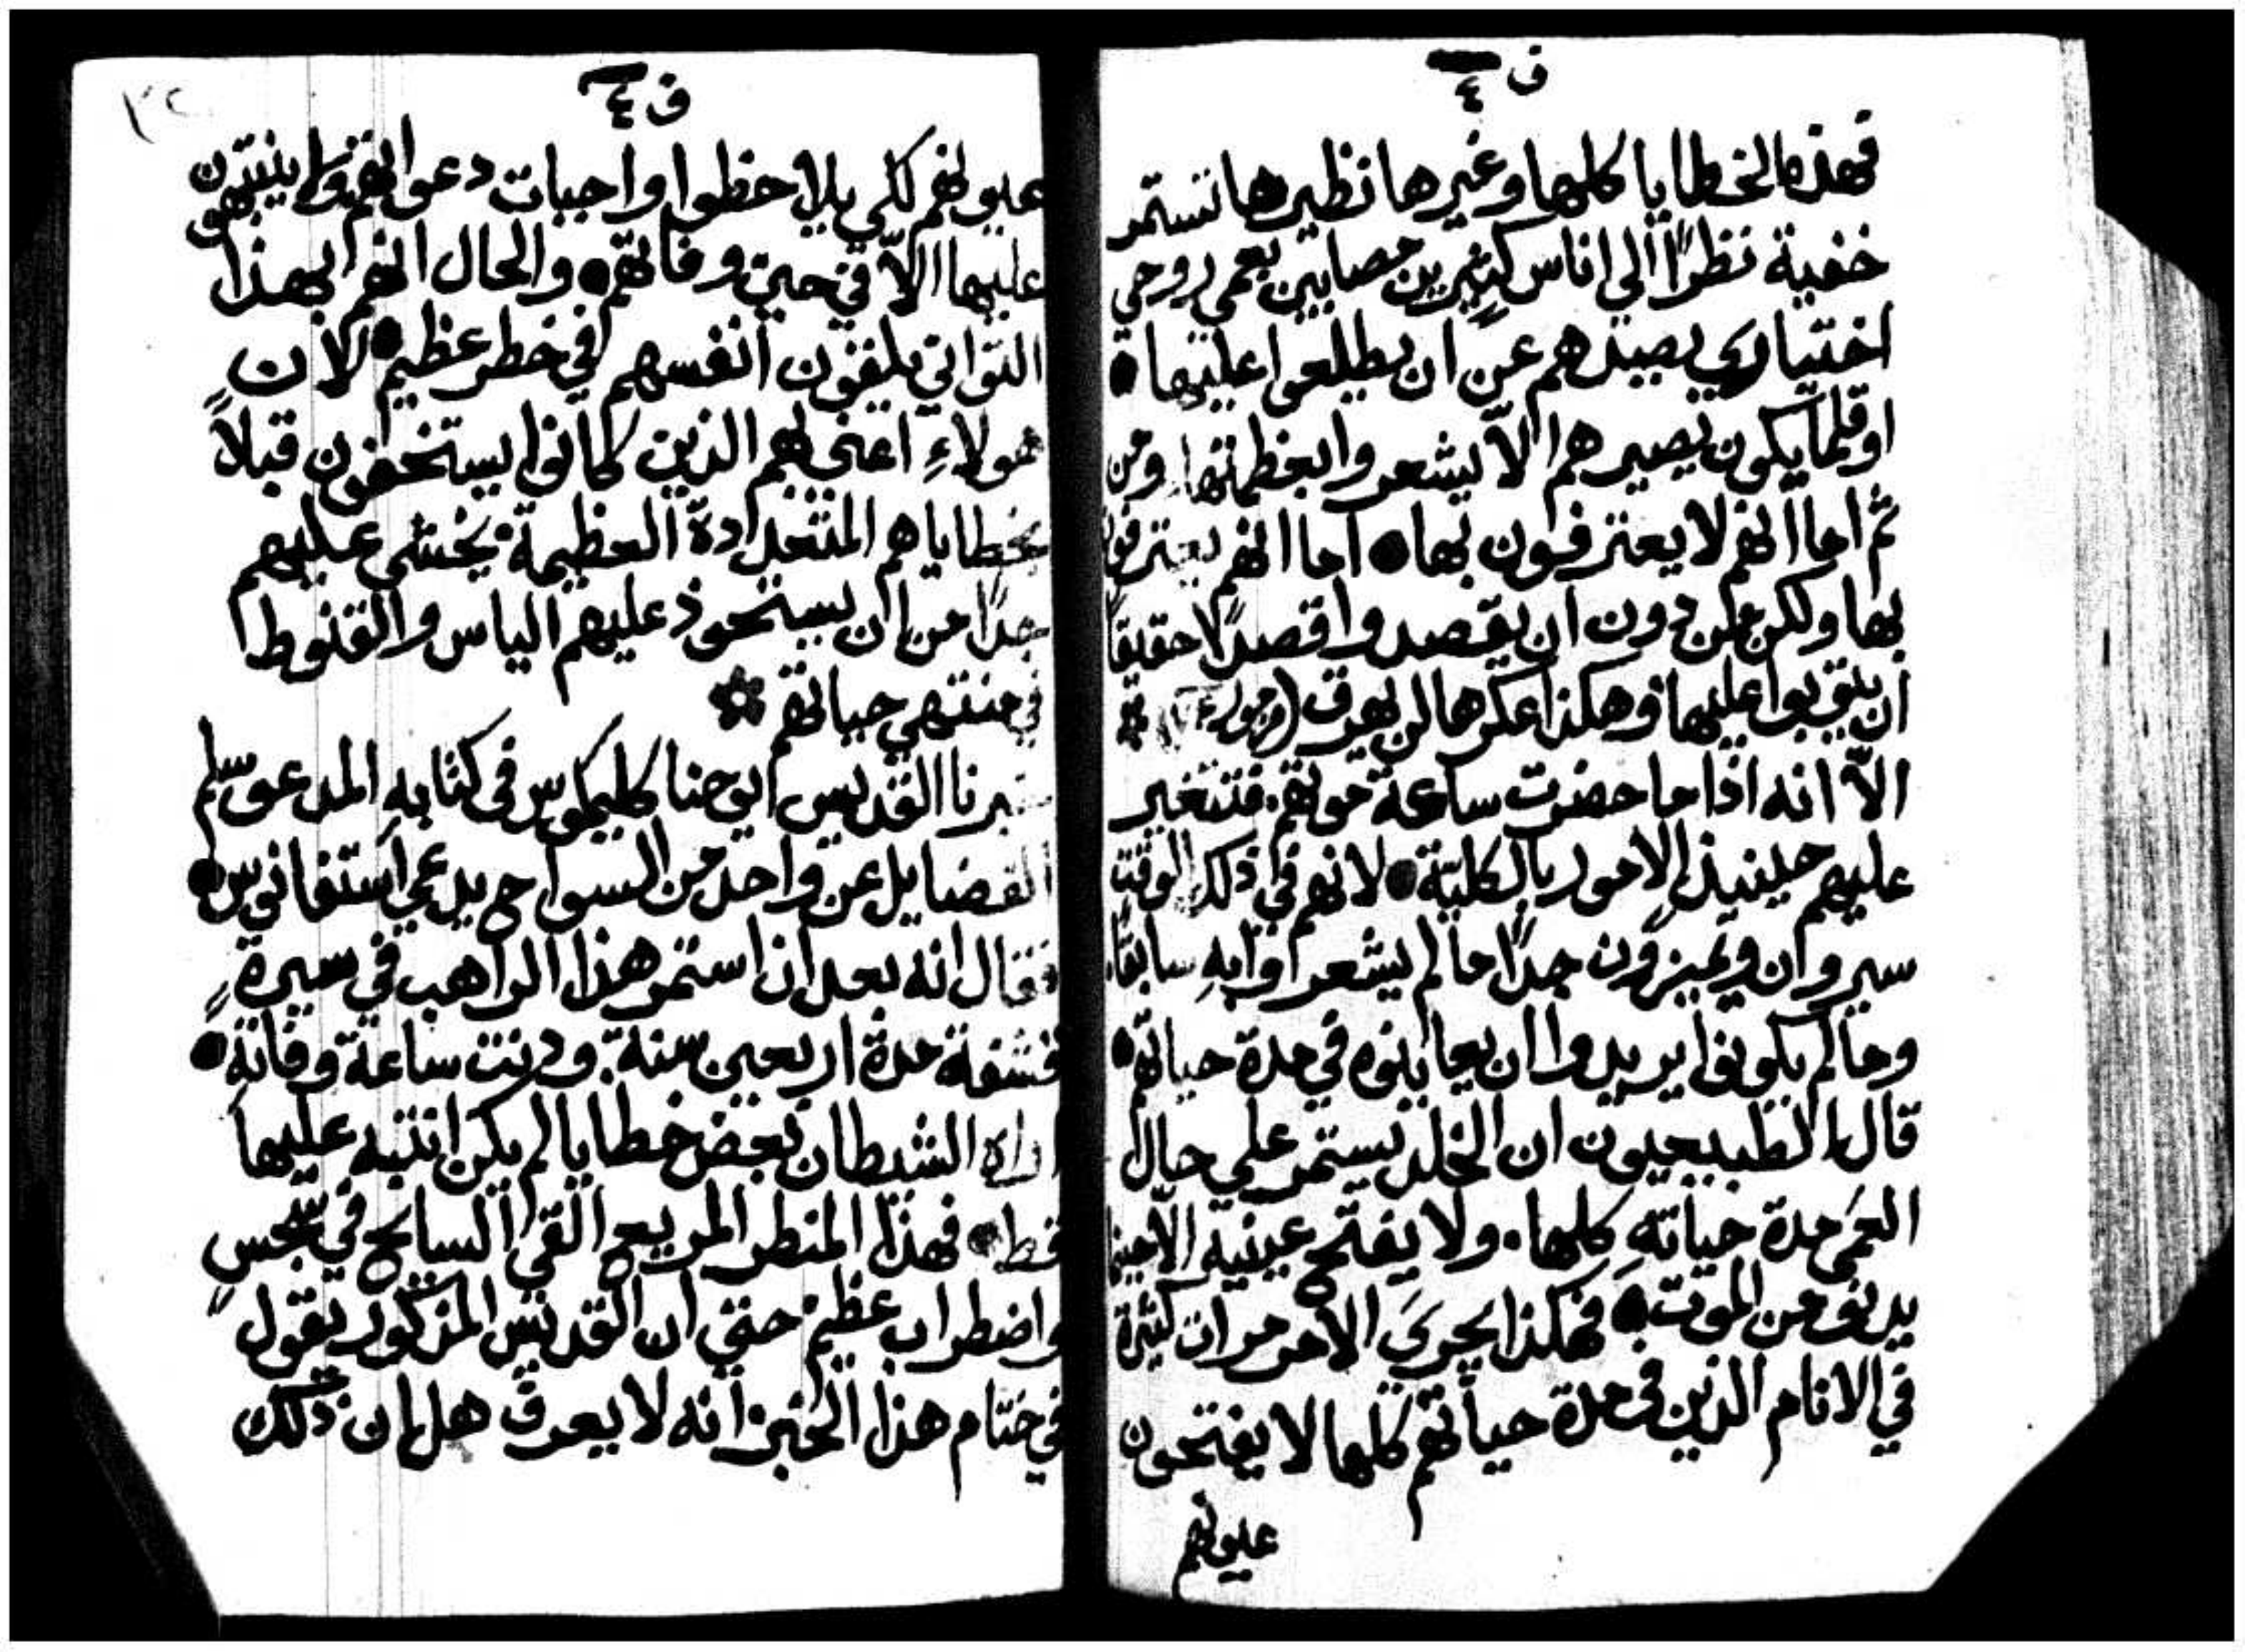 ف ٤
فهذه الخطايا كلها وغيرها نظيرها تستمر
خفية نظرًا الي اناس كثيرين مصابين بعمي روحي
اختياري يصدهم عن ان يطلعوا عليها
او قلما يكون يصيرهم الّا يشعروا بعظمتها. ومن
ثم اما انهم لا يعترفون بها اما انهم يعترفون
بها ولكن من دون ان يقصدوا قصدًا حقيقيًا
ان يتوبوا عليها وهكذا عكرها لن يهرق
الّا انه اذا ما حضرت ساعة موتهم فتتغير
عليهم حينيذ الامور بالكلية لانهم في ذلك الوقت
سيرون ويميزون جدًا ما لم يشعروا به سابقًا
وما لم يكونوا يريدوا ان يعاينوه في مدة حياتهم
قال الطبيعيون ان الخلد يستمر علي حال
العمَي مدة حياته كلها. ولا يفتح عينيه الّا حينما
يدنو من الموت فهكذا يجري الامر مرات كثيرة
في الانام الذين في مدة حياتهم كلها لا يفتحون
عيونهم
ف ٤
٣٢
عيونهم لكي يلاحظوا واجبات دعواتهم ولا ينتبهون
عليها الّا في حين وفاتهم والحال انهم بهذا
التواني يلقون انفسهم في خطر عظيم لان
هولاءِ اعني بهم الذين كانوا يستخفون قبلاً
بخطاياهم المتعدادة العظيمة يخشي عليهم
جدًا من ان يستحوذ عليهم الياس والقنوط
في منتهي حياتهم
يخبرنا القديس يوحنا كليمكوس في كتابه المدعو سلم
الفضايل عن واحد من السواح يدعي استفانوس
فقال انه بعد ان استمر هذا الراهب في سيرة
قشفة مدة اربعين سنة. ودنت ساعة وفاته
اراه الشيطان بعض خطايا لم يكن انتبه عليها
قط فهذا المنظر المريع القي السايح في سجسٍ
واضطراب عظيم حتي ان القديس المذكور يقول
في ختام هذا الخبر انه لا يعرف هل ان ذلك